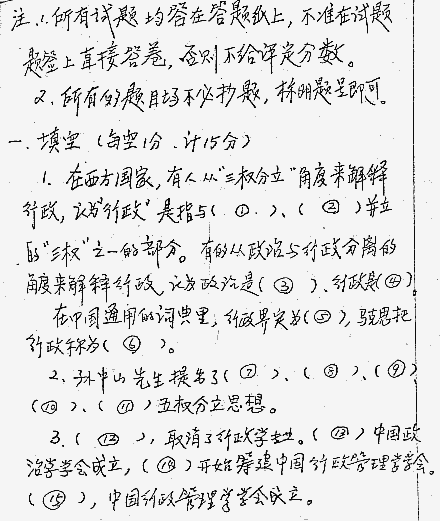 注：1.所有试题均答在答题纸上，不准在试题
题签上直接答卷，否则不给评定分数。
2.所有的题目均不必抄题，标明题号即可。
一．填空（每空1分．计15分）
1.在西方国家，有人从"三权分立"角度来解释
行政，认为"行政"是指与（①）、（②）并立
的"三权"之一的部分。有的从政治与行政分离的
角度来解释行政，认为政治是（③）、行政是（④）
在中国通用的词典里，行政界定为（⑤），马克思把
行政称为（⑥）。
2.孙中山先生提出了（⑦）、（⑧）、（⑨）
（⑩）、（⑪）五权分立思想。
3.（⑫），取消了行政学专业。（⑬）中国政
治学学会成立，（⑭）开始筹建中国行政管理学学会。
（⑮），中国行政管理学学会成立。